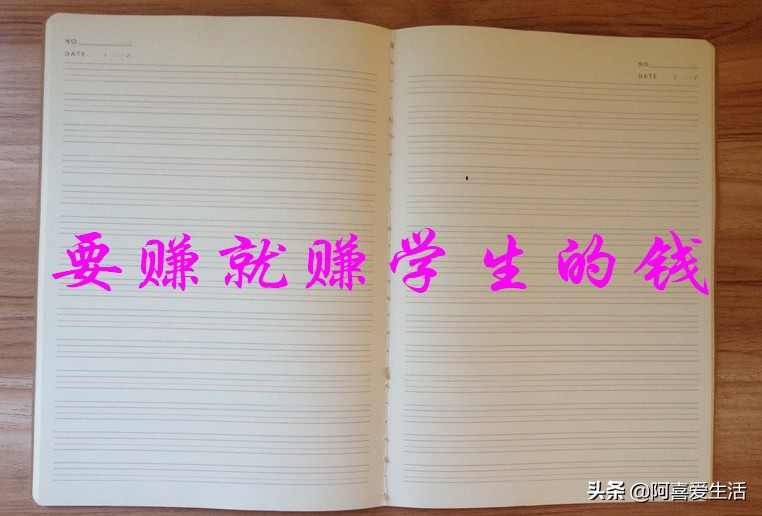 NO.
DATE / /
NO.
DATE / /
要赚就赚学生的钱
头条 @阿喜爱生活